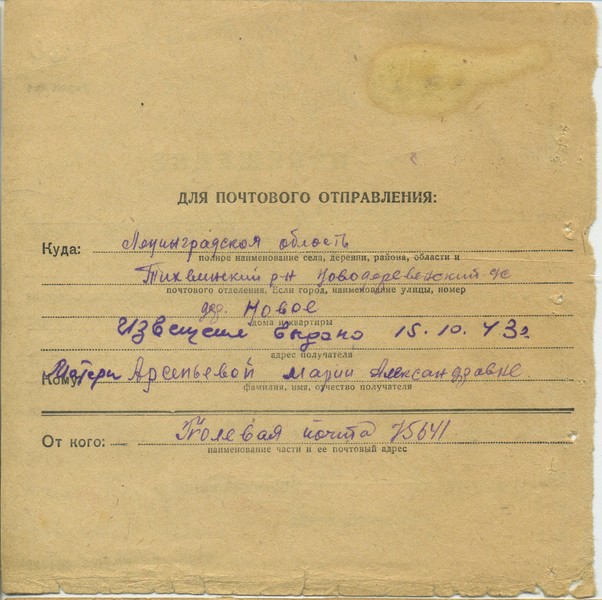 ДЛЯ ПОЧТОВОГО ОТПРАВЛЕНИЯ:
Куда: Ленинградская область
полное наименование села, деревни, района, области и
Тихвинский р-н Новодеревенский с/с
почтового отделения. Если город, наименование улицы, номер
дер. Новое
дома и квартиры
Извещение выдано 15.10.43г
адрес получателя
Кому: Матери Арсеньевой Марии Александровне
фамилия, имя, отчество получателя
От кого: Полевая почта 75641
наименование части и ее почтовый адрес